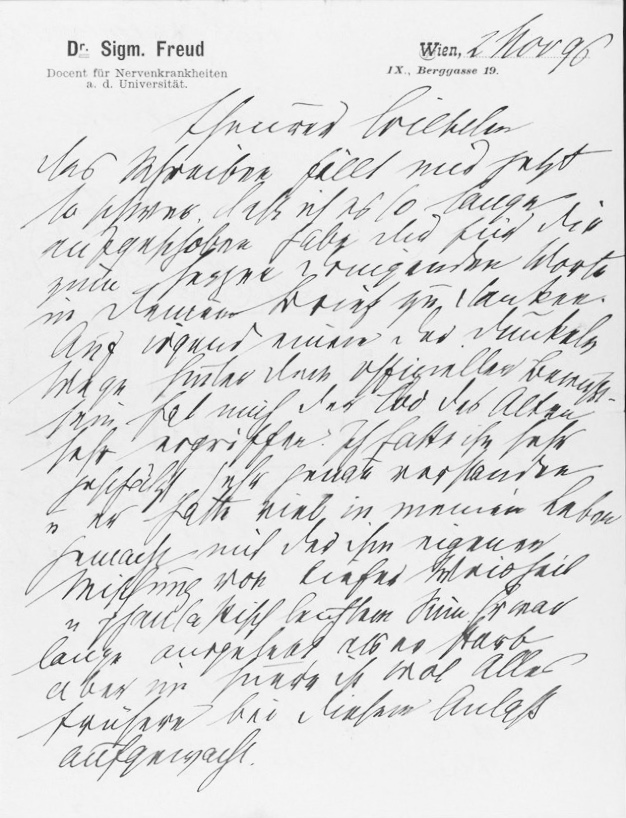 Dr. Sigm. Freud
Docent für Nervenkrankheiten
a. d. Universität.
Wien, 2 Nov 96
IX., Berggasse 19.
Theurer Wilhelm
das Schreiben fällt mir jetzt
so schwer, daß ich es so lange
aufgeschoben habe dir für die
zum Herzen dringenden Worte
in deinem Brief zu danken.
Auf irgend einem der dunkeln
Wege hinter dem officiellen Bewußt-
sein hat mich der Tod des Alten
sehr ergriffen. Ich hatte ihn sehr
geschätzt sehr genau verstanden
u er hatte viel in meinem Leben
gemacht mit der ihm eigenen
Mischung von tiefer Weisheit
u phantastisch leichtem Sinn Er war
lange ausgelebt als er starb
aber im Innern ist wol Alles
frühere bei diesem Anlaß
aufgewacht.